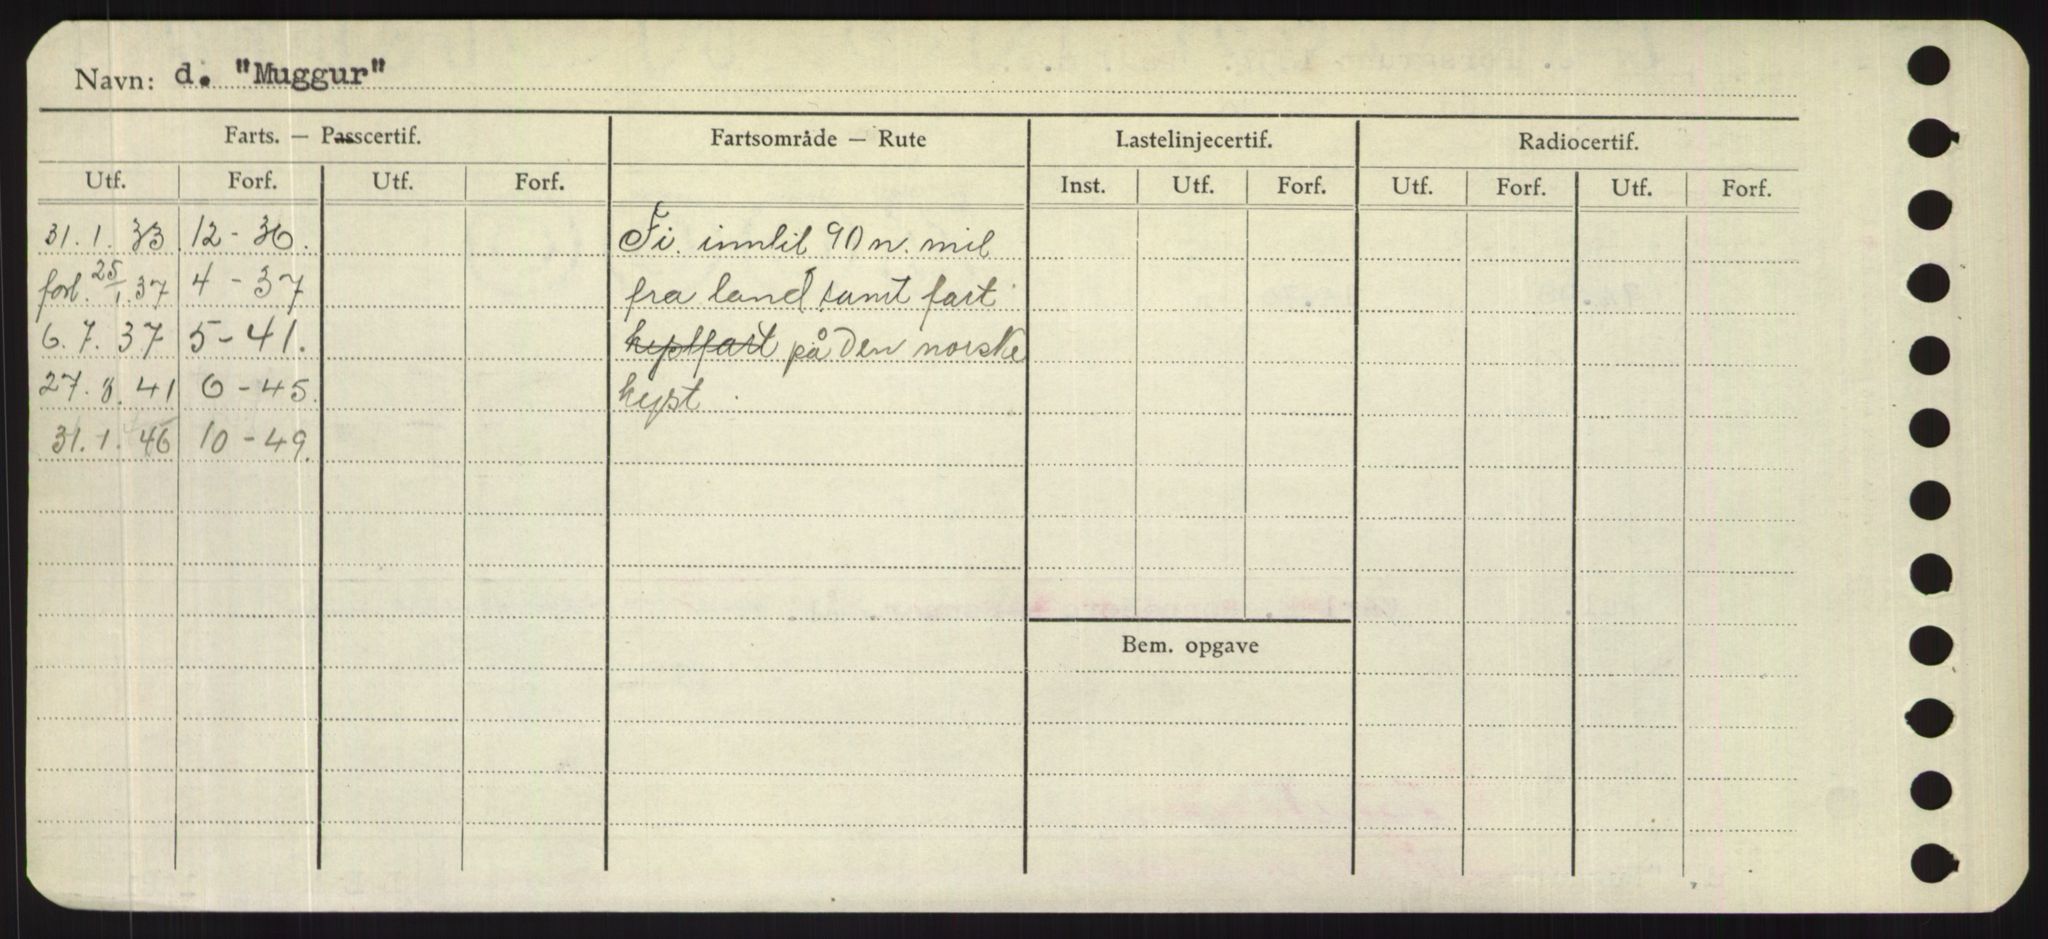 Navn: d. "Muggur"
Farts. — Passcertif. Fartsområde — Rute Lastelinjecertif. Radiocertif.
Utf. Forf. Utf. Forf. Inst. Utf. Forf. Utf. Forf. Utf. Forf.
31.1.33 12-36. Fi. inntil 90 n. mil
forl. 25/1.37 4-37 fra land samt fart
6.7.37 5-41. kystfart på den norske
27.8.41 6-45. kyst
31.1.46 10-49.
Bem. opgave